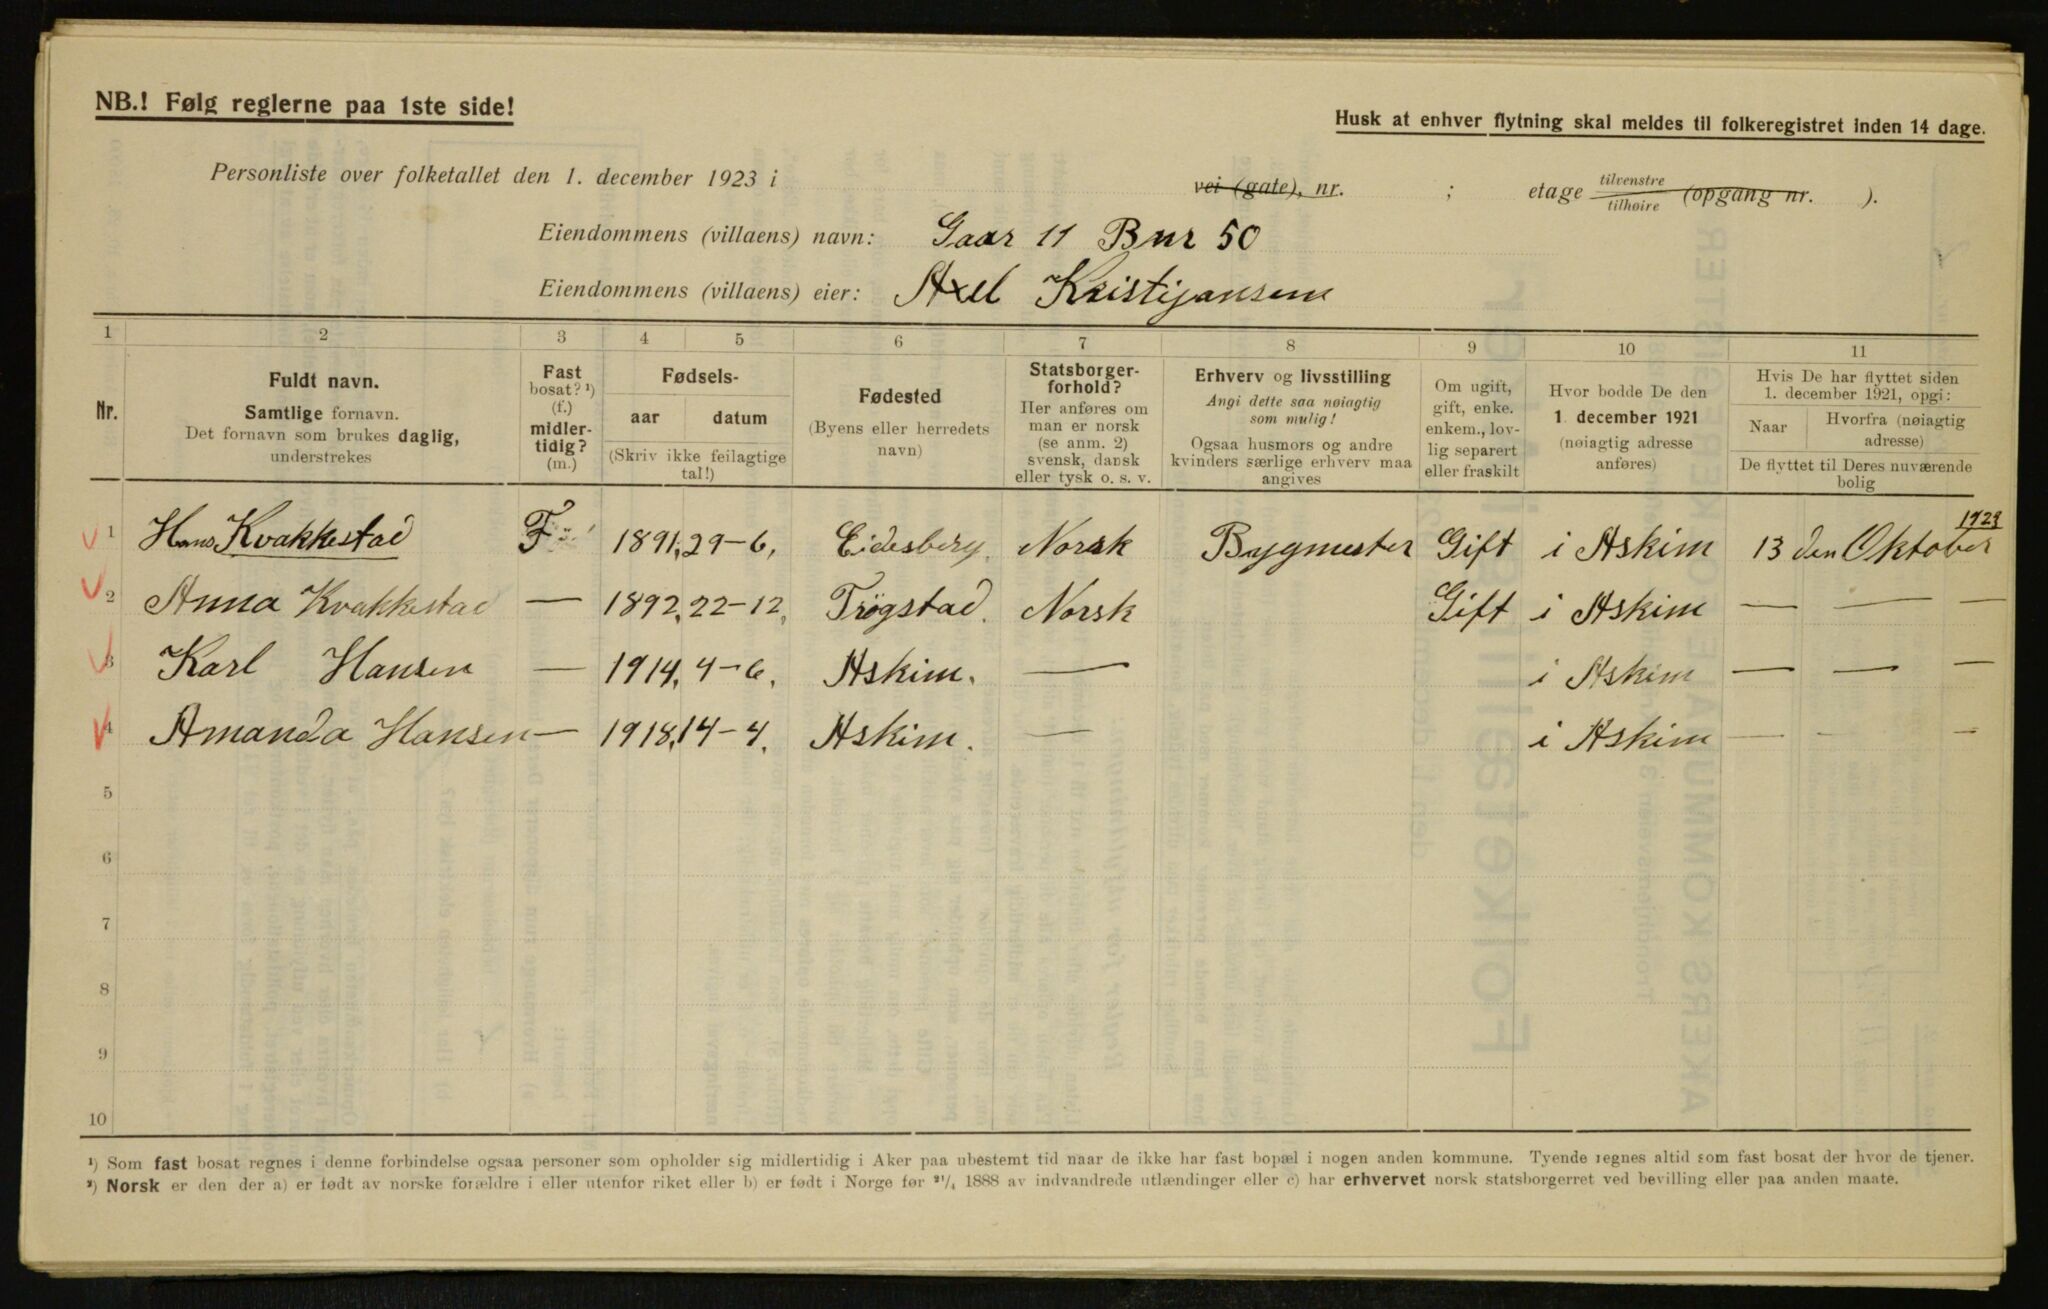 NB.! Følg reglerne paa 1ste side!
Husk at enhver flytning skal meldes til folkeregistret inden 14 dage.
Personliste over folketallet den 1. december 1923 i vei (gate), nr. ; etage tilvenstre tilhøire (opgang nr. ).
Eiendommens (villaens) navn: Gaar 11 Bnr 50
Eiendommens (villaens) eier: Axel Kristijansen
1 2 3 4 5 6 7 8 9 10 11
Nr.
Fuldt navn.
Samtlige fornavn.
Det fornavn som brukes daglig,
understrekes
Fast
bosat? ¹)
(f.)
midler-
tidig?
(m.)
Fødsels-
aar datum
(Skriv ikke feilagtige
tal!)
Fødested
(Byens eller herredets
navn)
Statsborger-
forhold?
Her anføres om
man er norsk
(se anm. 2)
svensk, dansk
eller tysk o. s. v.
Erhverv og livsstilling
Angi dette saa nøiagtig
som mulig!
Ogsaa husmors og andre
kvinders særlige erhverv maa
angives
Om ugift,
gift, enke.
enkem., lov-
lig separert
eller fraskilt
Hvor bodde De den
1. december 1921
(nøiagtig adresse
anføres)
Hvis De har flyttet siden
1. december 1921, opgi:
Naar
Hvorfra (nøiagtig
adresse)
De flyttet til Deres nuværende
bolig
1923
1 Hans Kvakkestad F 1891, 29-6, Eidesberg, Norsk Bygmester Gift i Askim 13 den Oktober
2 Anna Kvakkestad — 1892, 22-12, Trøgstad. Norsk Gift i Askim — — —
3 Karl Hansen — 1914, 4-6, Askim. — i Askim — — —
4 Amanda Hansen — 1918, 14-4, Askim. — i Askim — - -
5
6
7
8
9
10
¹) Som fast bosat regnes i denne forbindelse ogsaa personer som opholder sig midlertidig i Aker paa ubestemt tid naar de ikke har fast bopæl i nogen anden kommune. Tyende regnes altid som fast bosat der hvor de tjener.
²) Norsk er den der a) er født av norske forældre i eller utenfor riket eller b) er født i Norge før ²¹/₄ 1888 av indvandrede utlændinger eller c) har erhvervet norsk statsborgerret ved bevilling eller paa anden maate.